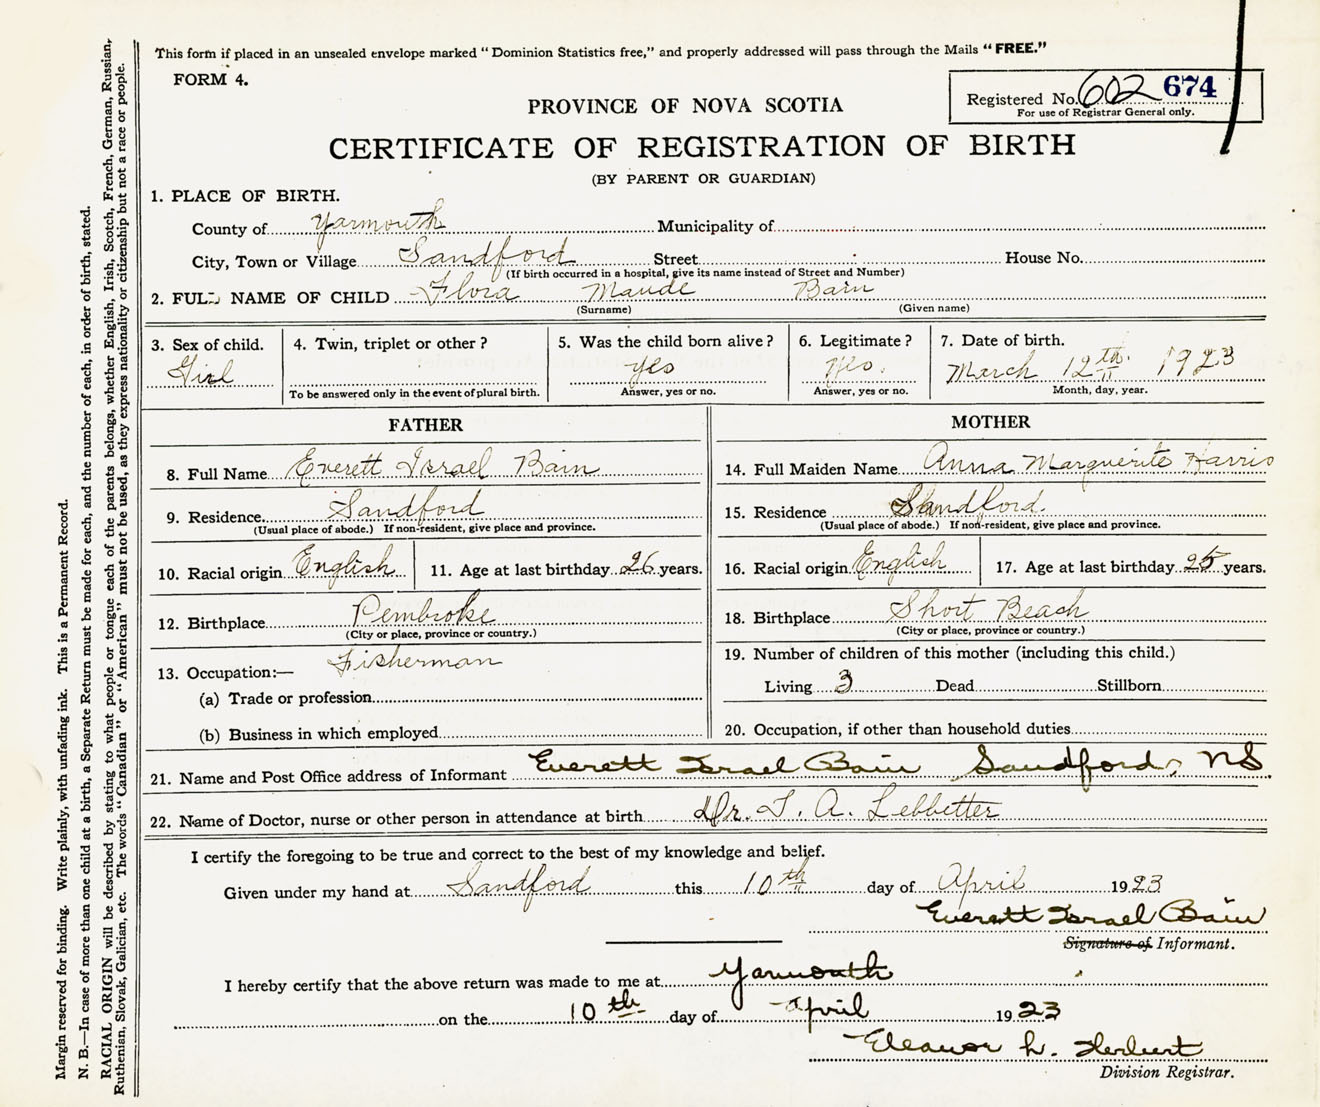 This form if placed in an unsealed envelope marked "Dominion Statistics free," and properly addressed will pass through the Mails "FREE."
FORM 4.
Registered No. 602 674
For use of Registrar General only.
PROVINCE OF NOVA SCOTIA
CERTIFICATE OF REGISTRATION OF BIRTH
(BY PARENT OR GUARDIAN)
1. PLACE OF BIRTH.
County of Yarmouth Municipality of
City, Town or Village Sandford Street House No.
(If birth occurred in a hospital, give its name instead of Street and Number)
2. FULL NAME OF CHILD Flora Maude Bain
(Surname) (Given name)
3. Sex of child. 4. Twin, triplet or other? 5. Was the child born alive? 6. Legitimate? 7. Date of birth.
Girl yes Yes. March 12th 1923
To be answered only in the event of plural birth. Answer, yes or no. Answer, yes or no. Month, day, year.
FATHER MOTHER
8. Full Name Everett Israel Bain 14. Full Maiden Name Anna Marguerite Harris
9. Residence Sandford 15. Residence Sandford.
(Usual place of abode.) If non-resident, give place and province. (Usual place of abode.) If non-resident, give place and province.
10. Racial origin English 11. Age at last birthday 26 years. 16. Racial origin English 17. Age at last birthday 25 years.
12. Birthplace Pembroke 18. Birthplace Short Beach
(City or place, province or country.) (City or place, province or country.)
13. Occupation:— Fisherman 19. Number of children of this mother (including this child.)
(a) Trade or profession Living 3 Dead Stillborn
(b) Business in which employed 20. Occupation, if other than household duties
21. Name and Post Office address of Informant Everett Israel Bain Sandford, NS.
22. Name of Doctor, nurse or other person in attendance at birth Dr. T. A. Lebbetter
I certify the foregoing to be true and correct to the best of my knowledge and belief.
Given under my hand at Sandford this 10th day of April 1923
Everett Israel Bain
Signature of Informant.
I hereby certify that the above return was made to me at Yarmouth
on the 10th day of April 1923
Eleanor L. Herbert
Division Registrar.
Margin reserved for binding. Write plainly, with unfading ink. This is a Permanent Record.
N. B.—In case of more than one child at a birth, a Separate Return must be made for each, and the number of each, in order of birth, stated.
RACIAL ORIGIN will be described by stating to what people or tongue each of the parents belongs, whether English, Irish, Scotch, French, German, Russian,
Ruthenian, Slovak, Galician, etc. The words "Canadian" or "American" must not be used, as they express nationality or citizenship but not a race or people.